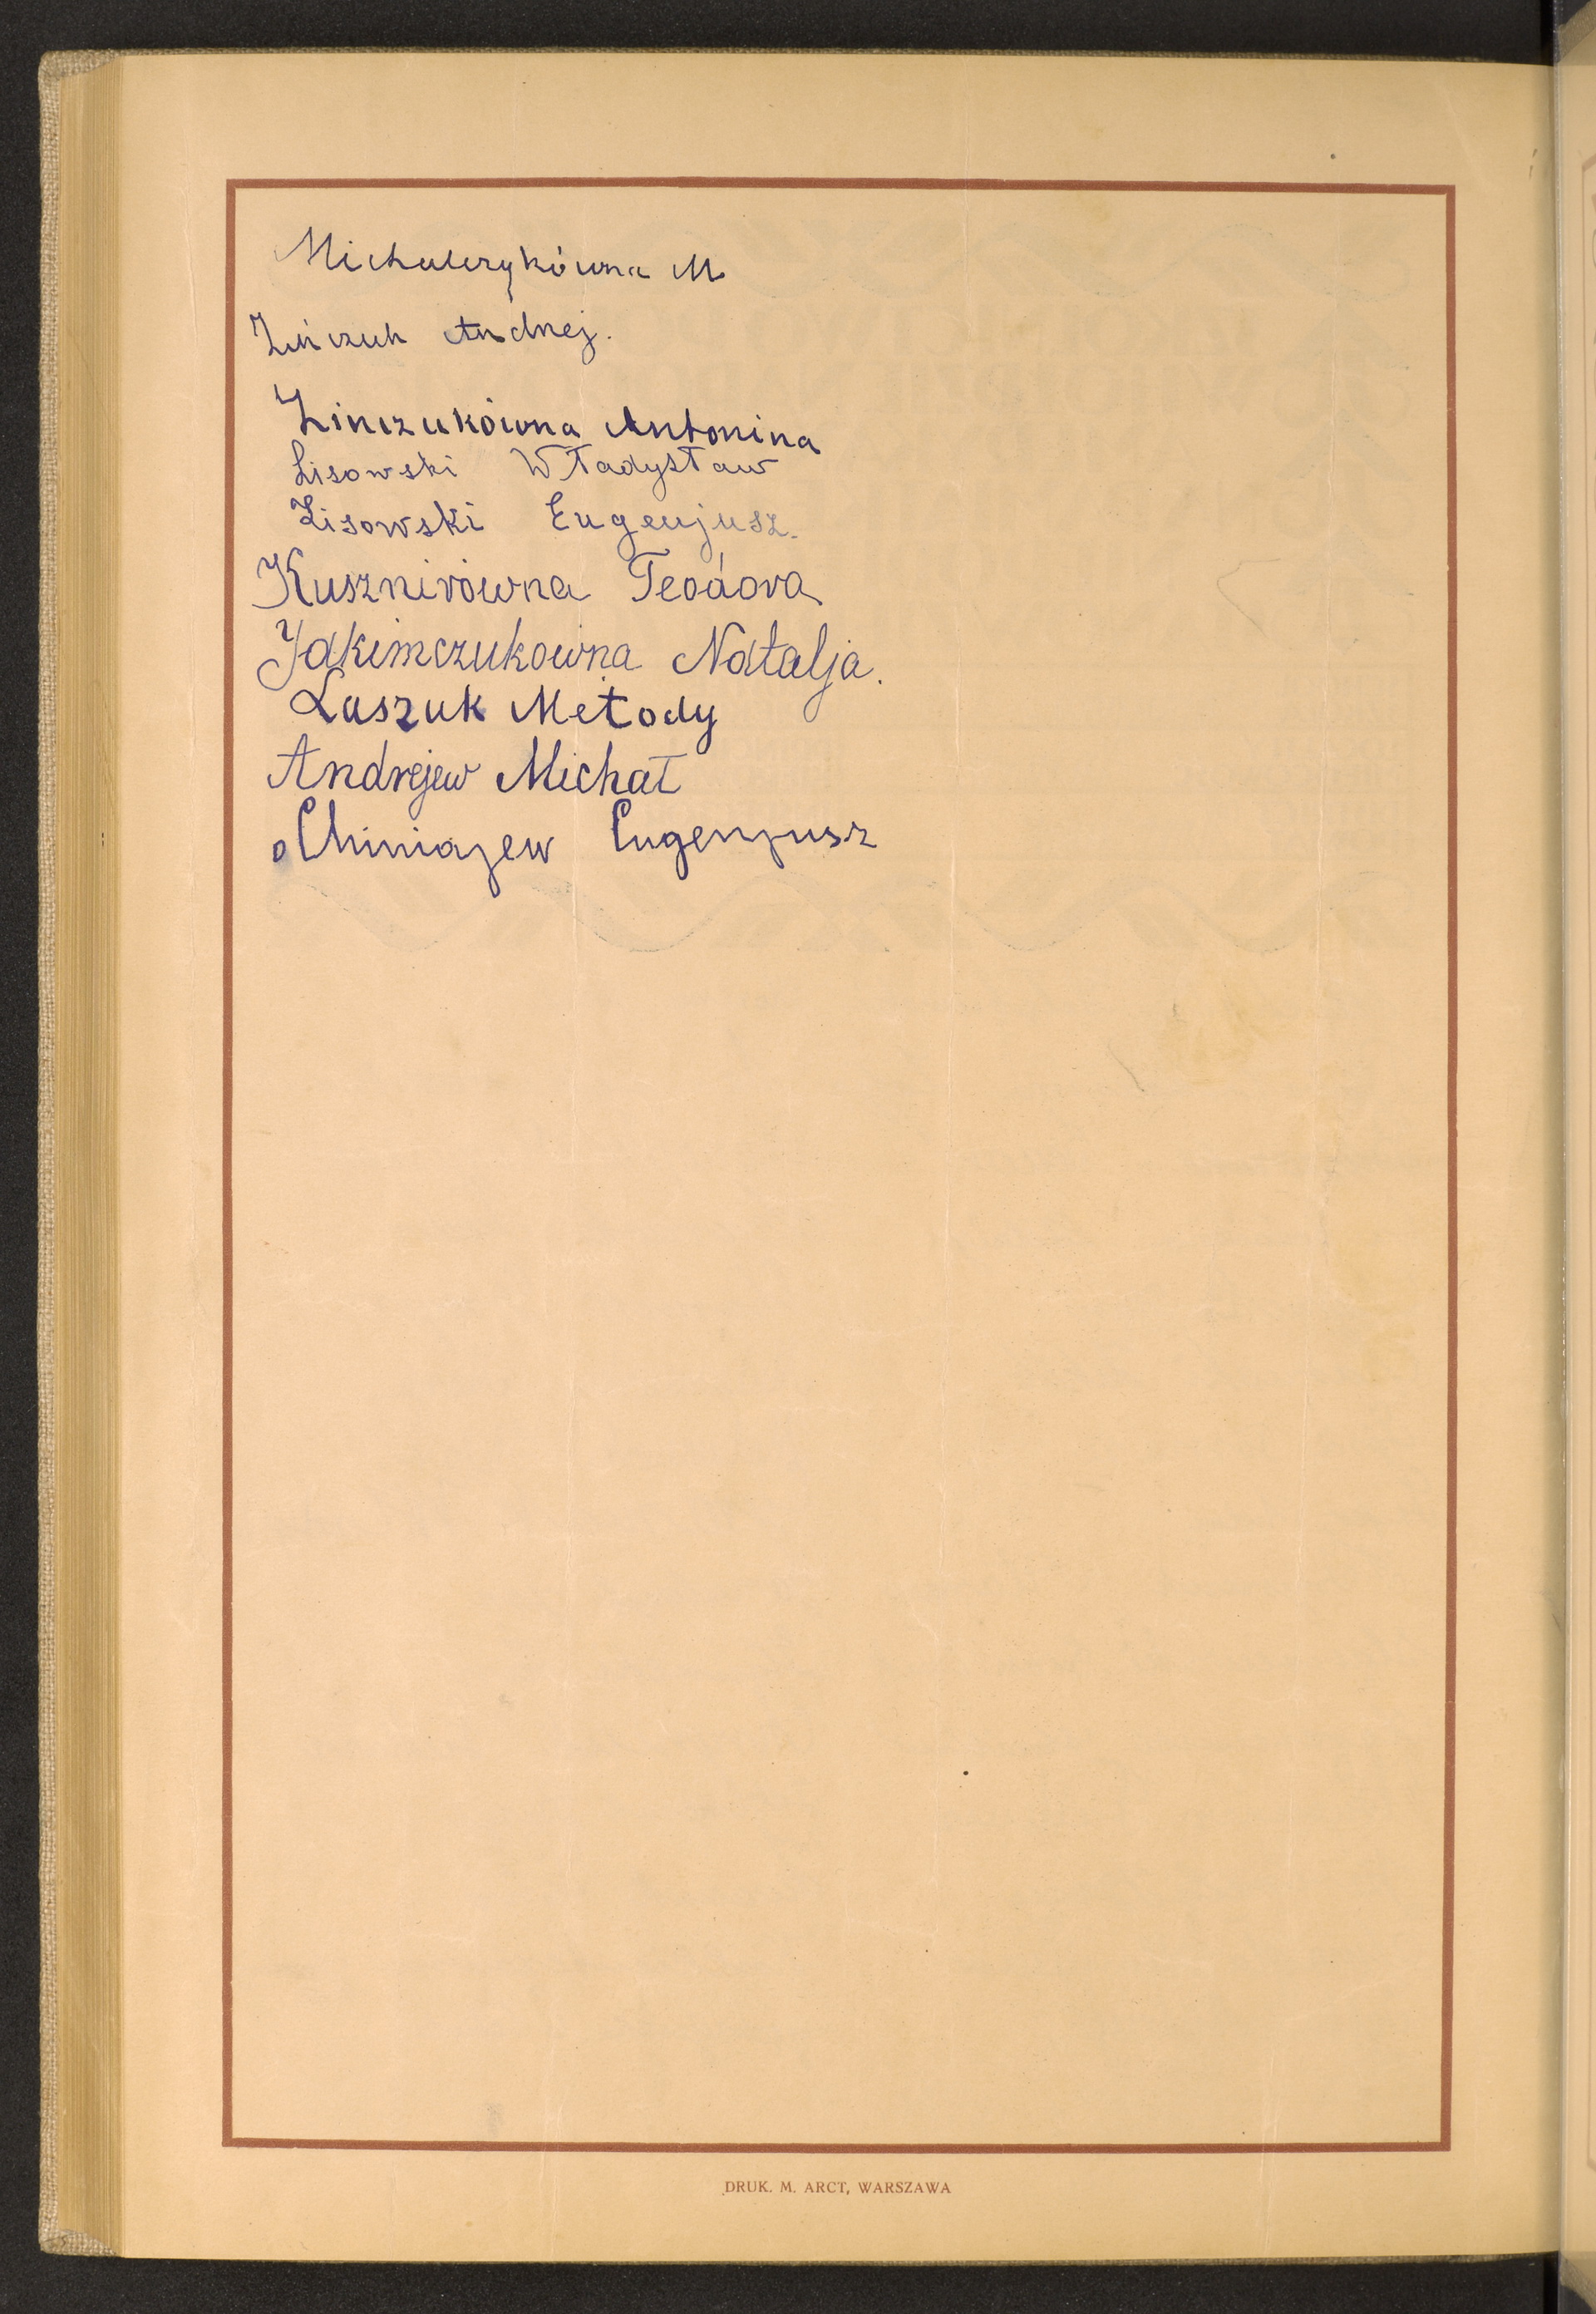 Michalczykówna M
Zińczuk Andrzej.
Zinczukówna Antonina
Lisowski Władysław
Lisowski Eugenjusz.
Kusznirówna Teodora
Jakimczukówna Natalja.
Laszuk Metody
Andrejew Michał
Chiniajew Eugenjusz
DRUK. M. ARCT, WARSZAWA